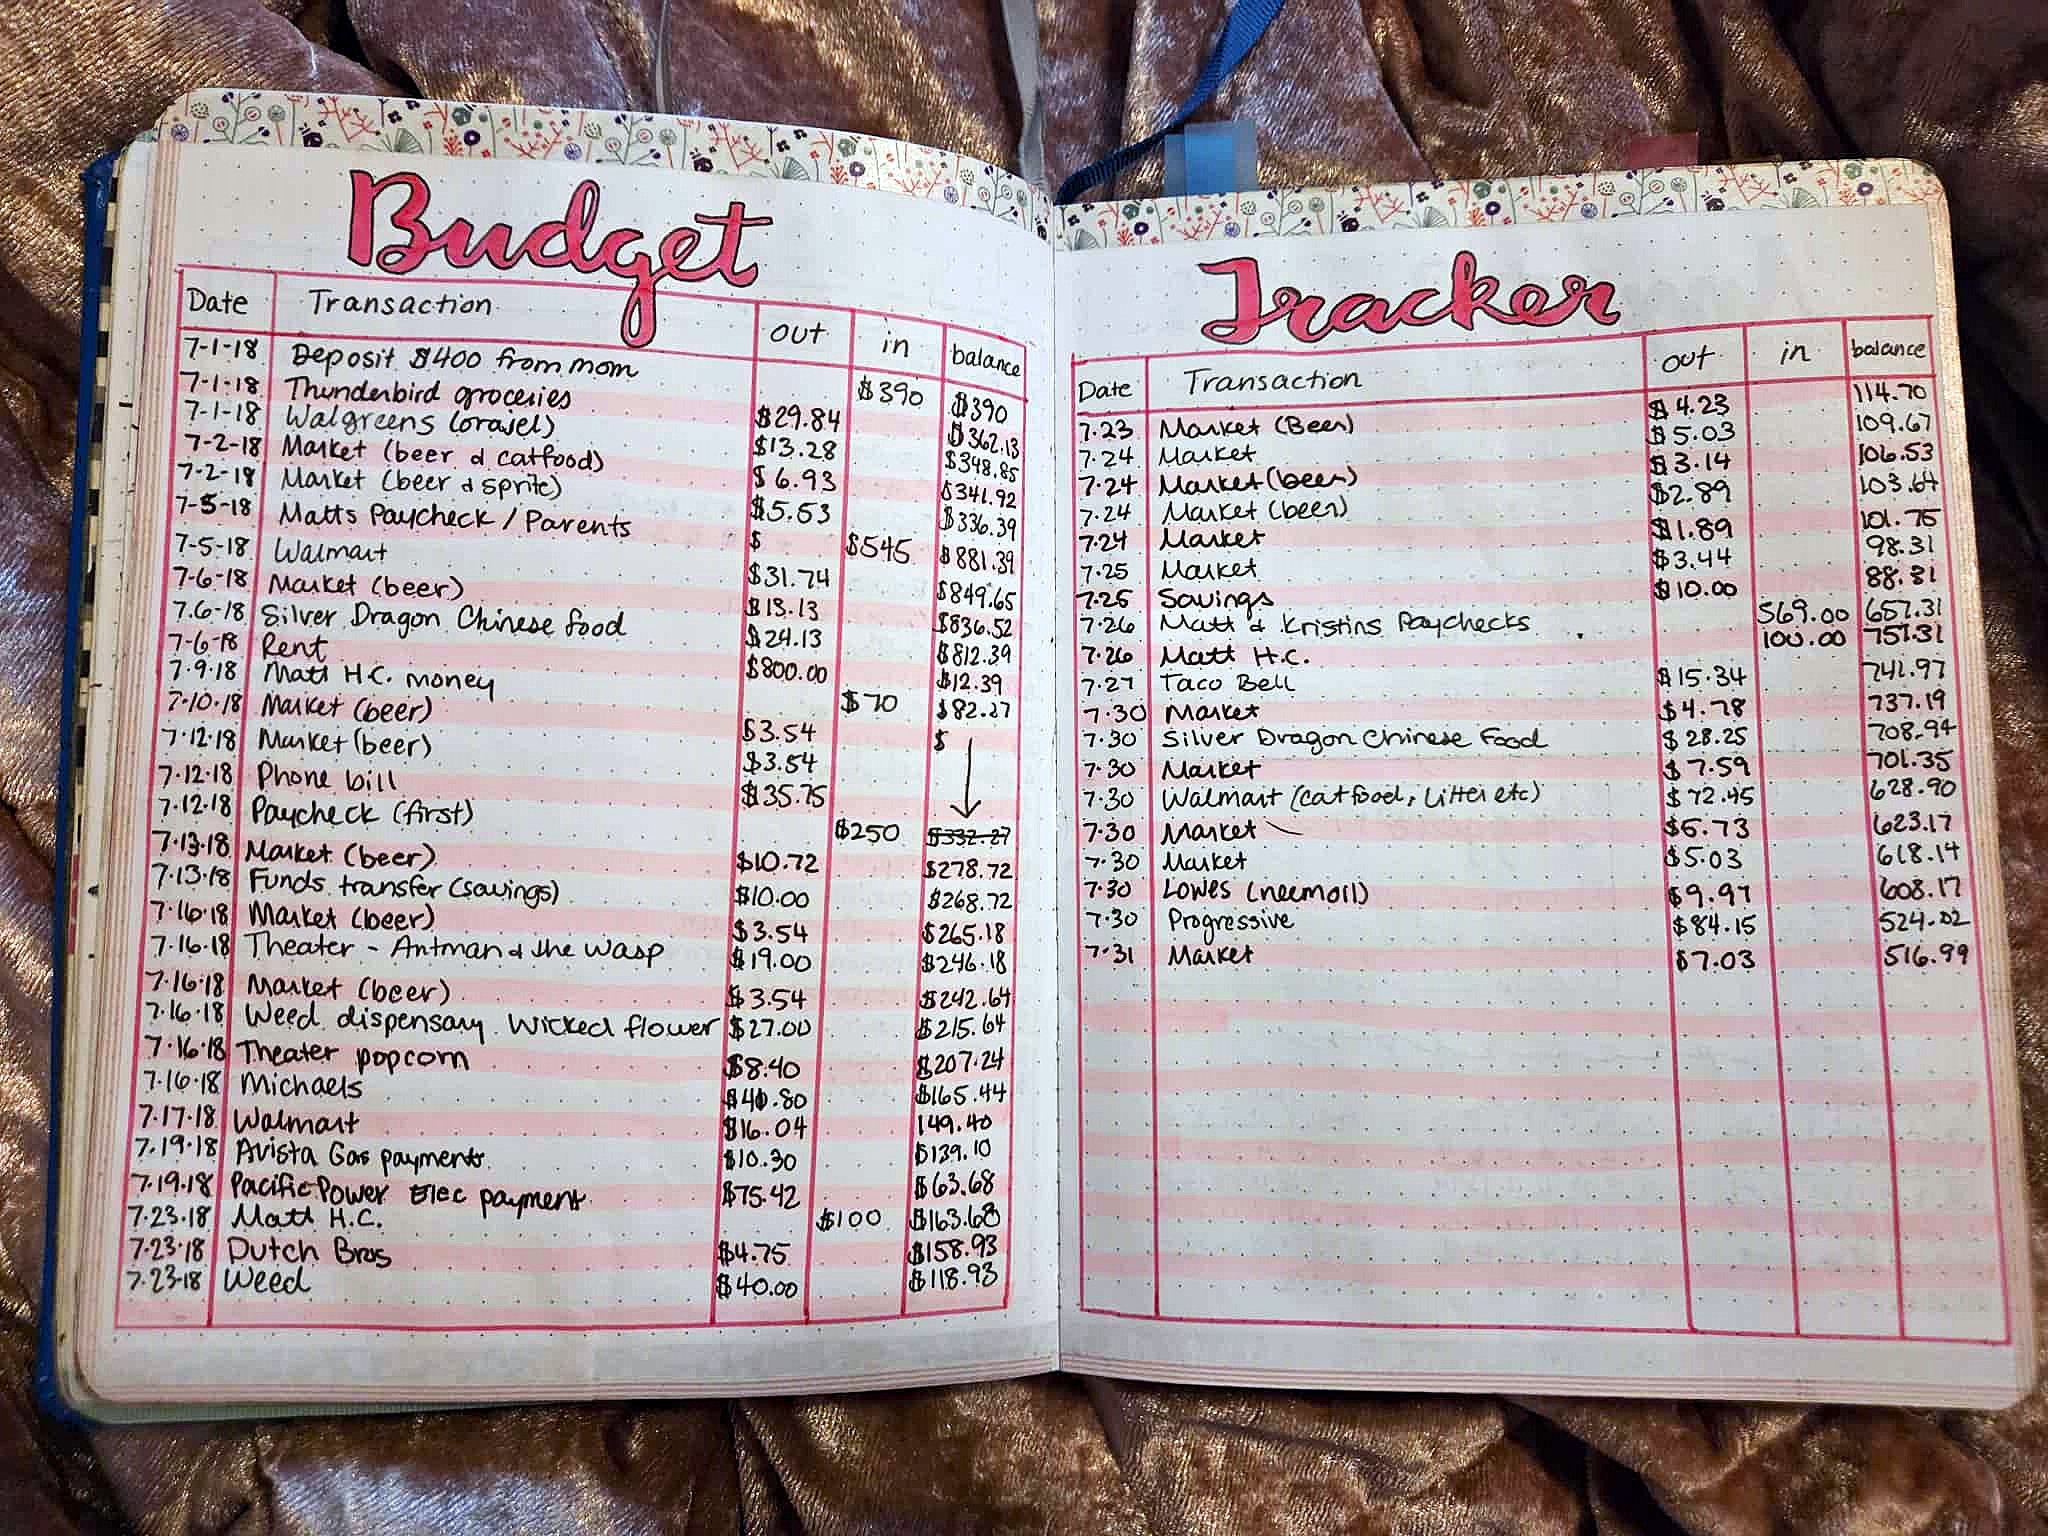 Budget
Date Transaction out in balance
7-1-18 Deposit $400 from mom $390 $390
7-1-18 Thunderbird groceries $29.84 $362.13
7-1-18 Walgreens (orajel) $13.28 $348.85
7-2-18 Market (beer & catfood) $6.93 $341.92
7-2-18 Market (beer & sprite) $5.53 $336.39
7-5-18 Matts Paycheck / Parents $ $545 $881.39
7-5-18 Walmart $31.74 $849.65
7-6-18 Market (beer) $13.13 $836.52
7.6-18 Silver Dragon Chinese food $24.13 $812.39
7-6-18 Rent $800.00 $12.39
7.9.18 Matt H.C. money $70 $82.27
7.10.18 Market (beer) $3.54 $
7.12.18 Market (beer) $3.54
7.12.18 Phone bill $35.75
7.12.18 Paycheck (first) $250 $332.27
7.13.18 Market (beer) $10.72 $278.72
7.13.18 Funds transfer (savings) $10.00 $268.72
7.16.18 Market (beer) $3.54 $265.18
7.16.18 Theater - Antman & the Wasp $19.00 $246.18
7.16.18 Market (beer) $3.54 $242.64
7.16.18 Weed dispensary Wicked flower $27.00 $215.64
7.16.18 Theater popcorn $8.40 $207.24
7.16.18 Michaels $41.80 $165.44
7.17.18 Walmart $16.04 149.40
7.19.18 Avista Gas payment $10.30 $139.10
7.19.18 Pacific Power Elec payment $75.42 $63.68
7.23.18 Matt H.C. $100 $163.68
7.23.18 Dutch Bros $4.75 $158.93
7.23.18 Weed $40.00 $118.93
Tracker
Date Transaction out in balance
7.23 Market (Beer) $4.23 114.70
7.24 Market $5.03 109.67
7.24 Market (beer) $3.14 106.53
7.24 Market (beer) $2.89 103.64
7.24 Market $1.89 101.75
7.25 Market $3.44 98.31
7.25 Savings $10.00 88.31
7.26 Matt & Kristins Paychecks 569.00 657.31
7.26 Matt H.C. 100.00 757.31
7.27 Taco Bell $15.34 741.97
7.30 Market $4.78 737.19
7.30 Silver Dragon Chinese Food $28.25 708.94
7.30 Market $7.59 701.35
7.30 Walmart (catfood, litter etc) $72.45 628.90
7.30 Market $5.73 623.17
7.30 Market $5.03 618.14
7.30 Lowes (neemoil) $9.97 608.17
7.30 Progressive $84.15 524.02
7.31 Market $7.03 516.99